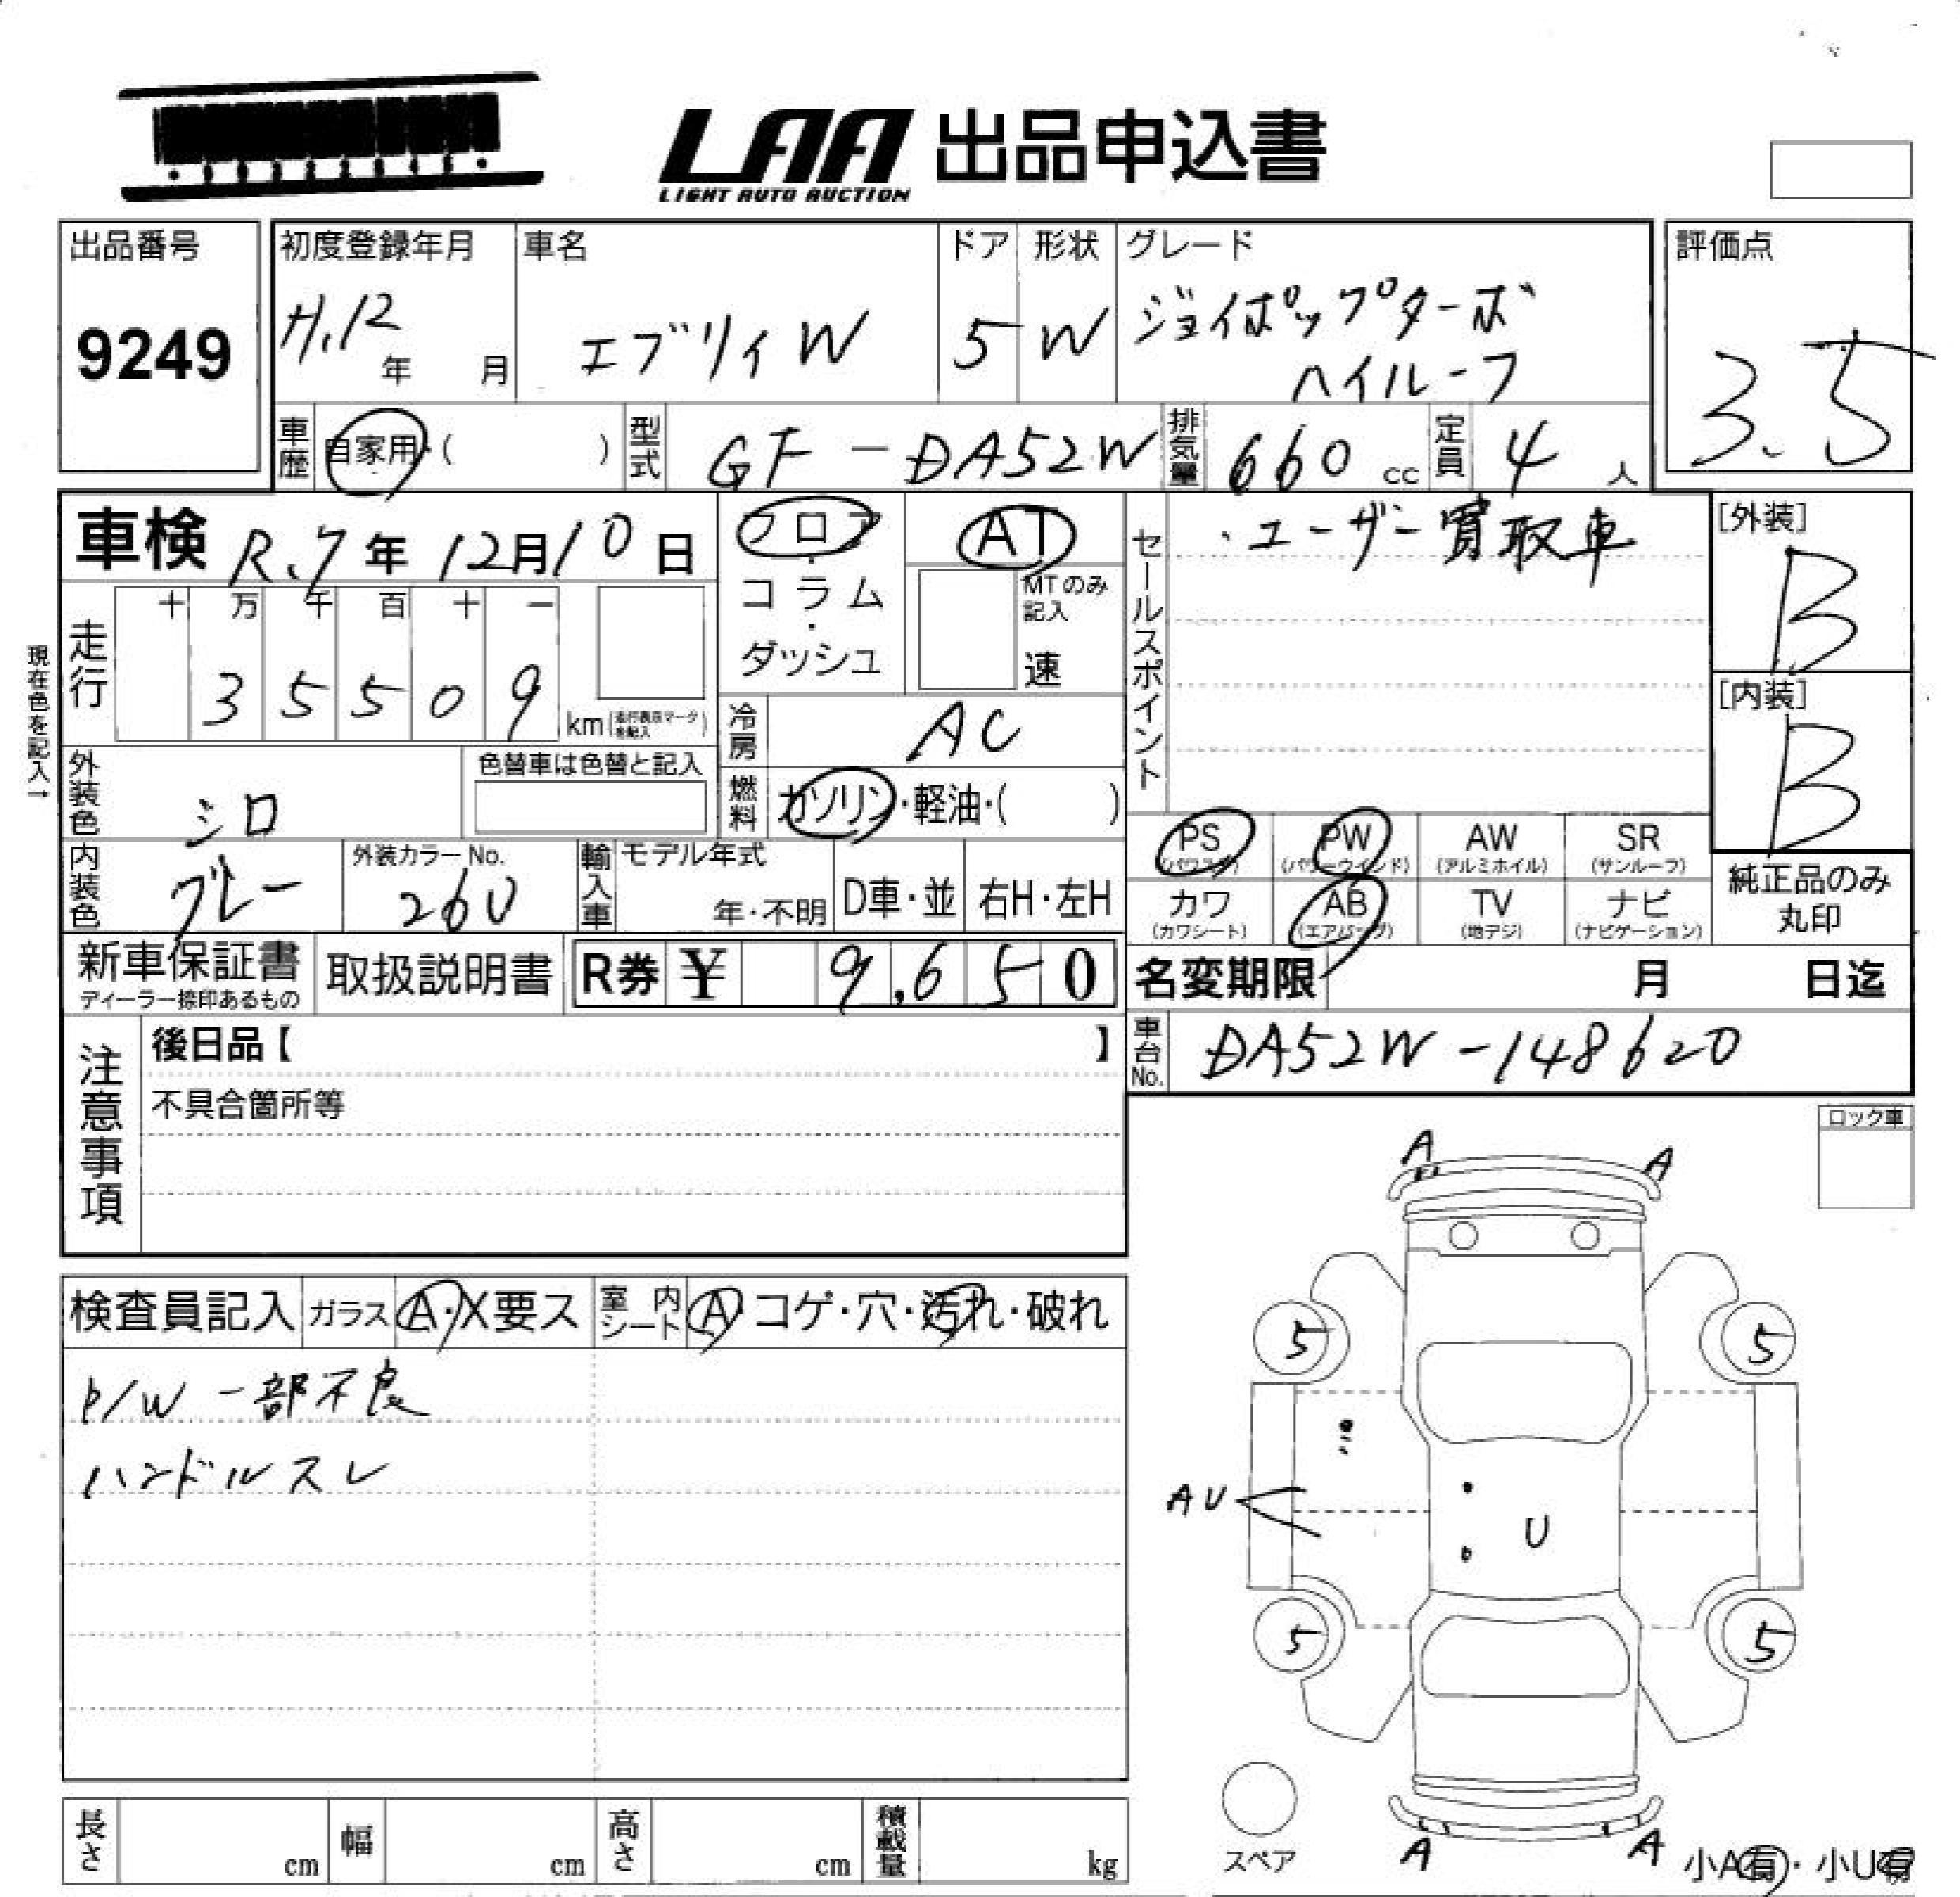 LAA 出品申込書
LIGHT AUTO AUCTION
出品番号
9249
初度登録年月
H.12 年 月
車名
エブリィW
ドア
5
形状
W
グレード
ジョイポップターボ
ハイルーフ
評価点
3.5
車歴 自家用・( )
型式 GF-DA52W
排気量 660 cc
定員 4 人
車検 R.7年 12月10日
フロア・コラム・ダッシュ
AT
MTのみ記入
速
セールスポイント
・ユーザー買取車
[外装]
B
[内装]
B
現在色を記入→
走行
十 万 千 百 十 一
3 5 5 0 9 km(走行表示マークを記入)
冷房 AC
外装色 シロ
色替車は色替と記入
燃料 ガソリン・軽油・( )
内装色 グレー
外装カラーNo.
26U
輸入車 モデル年式
年・不明
D車・並
右H・左H
PS
(パワステ)
PW
(パワーウインド)
AW
(アルミホイル)
SR
(サンルーフ)
カワ
(カワシート)
AB
(エアバッグ)
TV
(地デジ)
ナビ
(ナビゲーション)
純正品のみ
丸印
新車保証書
ディーラー捺印あるもの
取扱説明書
R券 ¥ 9,650
名変期限 月 日迄
車台No. DA52W-148620
注意事項
後日品【 】
不具合箇所等
ロック車
検査員記入
ガラス A・X要ス
室内シート A・コゲ・穴・汚れ・破れ
P/W 一部不良
ハンドルスレ
A A
5 5
AU
U
5 5
スペア
A A
小A有・小U有
長さ cm
幅 cm
高さ cm
積載量 kg